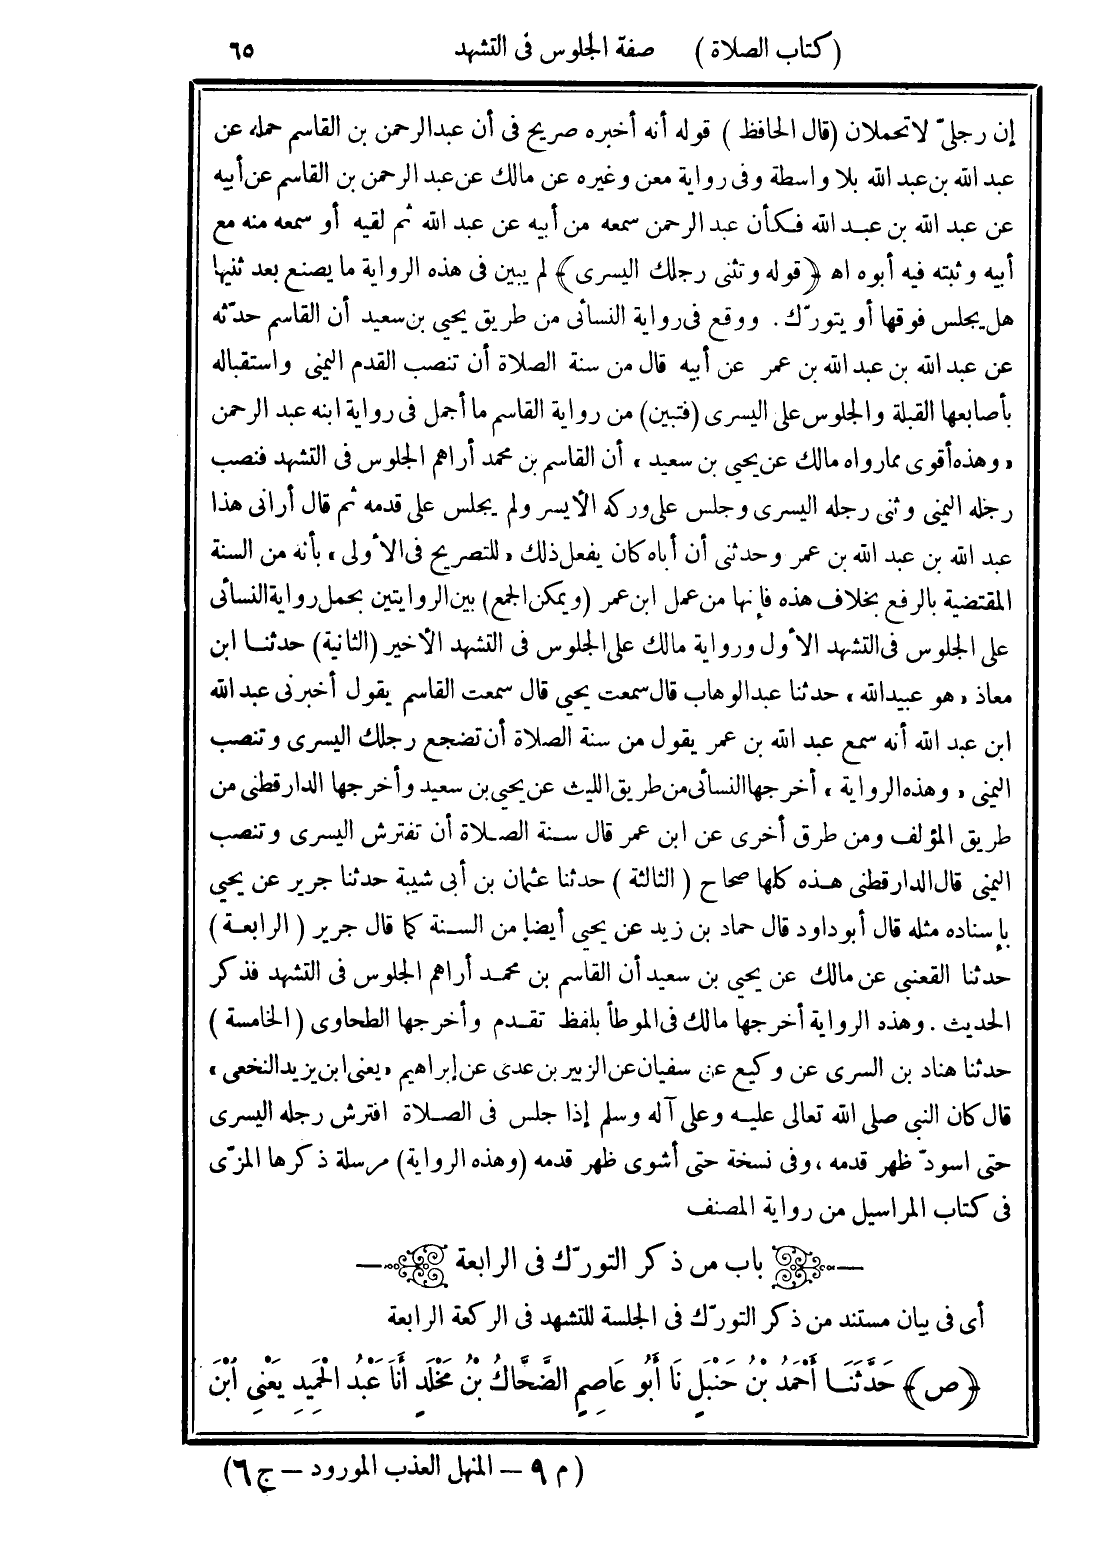 (كتاب الصلاة) صفة الجلوس فى التشهد ٦٥
إن رجلىّ لاتحملان (قال الحافظ) قوله أنه أخبره صريح فى أن عبدالرحمن بن القاسم حمله عن
عبد الله بن عبد الله بلا واسطة وفى رواية معن وغيره عن مالك عن عبد الرحمن بن القاسم عن أبيه
عن عبد الله بن عبد الله فكأن عبد الرحمن سمعه من أبيه عن عبد الله ثم لقيه أو سمعه منه مع
أبيه وثبته فيه أبوه اه ﴿قوله وتثنى رجلك اليسرى﴾ لم يبين فى هذه الرواية ما يصنع بعد ثنيها
هل يجلس فوقها أو يتورّك. ووقع فى رواية النسائى من طريق يحيى بن سعيد أن القاسم حدّثه
عن عبد الله بن عبد الله بن عمر عن أبيه قال من سنة الصلاة أن تنصب القدم اليمنى واستقباله
بأصابعها القبلة والجلوس على اليسرى (فتبين) من رواية القاسم ما أجمل فى رواية ابنه عبد الرحمن
«وهذه أقوى مما رواه مالك عن يحيى بن سعيد» أن القاسم بن محمد أراهم الجلوس فى التشهد فنصب
رجله اليمنى وثنى رجله اليسرى وجلس على وركه الأيسر ولم يجلس على قدمه ثم قال أرانى هذا
عبد الله بن عبد الله بن عمر وحدثنى أن أباه كان يفعل ذلك «للتصريح فى الأولى» بأنه من السنة
المقتضية بالرفع بخلاف هذه فإنها من عمل ابن عمر (ويمكن الجمع) بين الروايتين بحمل رواية النسائى
على الجلوس فى التشهد الأول ورواية مالك على الجلوس فى التشهد الأخير (الثانية) حدثنا ابن
معاذ «هو عبيدالله» حدثنا عبدالوهاب قال سمعت يحيى قال سمعت القاسم يقول أخبرنى عبد الله
ابن عبد الله أنه سمع عبد الله بن عمر يقول من سنة الصلاة أن تضجع رجلك اليسرى وتنصب
اليمنى «وهذه الرواية» أخرجها النسائى من طريق الليث عن يحيى بن سعيد وأخرجها الدارقطنى من
طريق المؤلف ومن طرق أخرى عن ابن عمر قال سنة الصلاة أن تفترش اليسرى وتنصب
اليمنى قال الدارقطنى هذه كلها صحاح (الثالثة) حدثنا عثمان بن أبى شيبة حدثنا جرير عن يحيى
بإسناده مثله قال أبوداود قال حماد بن زيد عن يحيى أيضا من السنة كما قال جرير (الرابعة)
حدثنا القعنبى عن مالك عن يحيى بن سعيد أن القاسم بن محمد أراهم الجلوس فى التشهد فذكر
الحديث. وهذه الرواية أخرجها مالك فى الموطأ بلفظ تقدم وأخرجها الطحاوى (الخامسة)
حدثنا هناد بن السرى عن وكيع عن سفيان عن الزبير بن عدى عن إبراهيم «يعنى ابن يزيد النخعى»
قال كان النبى صلى الله تعالى عليه وعلى آله وسلم إذا جلس فى الصلاة افترش رجله اليسرى
حتى اسودّ ظهر قدمه، وفى نسخة حتى أشوى ظهر قدمه (وهذه الرواية) مرسلة ذكرها المزّى
فى كتاب المراسيل من رواية المصنف
باب من ذكر التورّك فى الرابعة
أى فى بيان مستند من ذكر التورّك فى الجلسة للتشهد فى الركعة الرابعة
﴿ص﴾ حَدَّثَنَا أَحْمَدُ بْنُ حَنْبَلٍ نَا أَبُو عَاصِمٍ الضَّحَّاكُ بْنُ مَخْلَدٍ أَنَا عَبْدُ الْحَمِيدِ يَعْنِى ابْنَ
(م ٩ – المنهل العذب المورود – ج ٦)